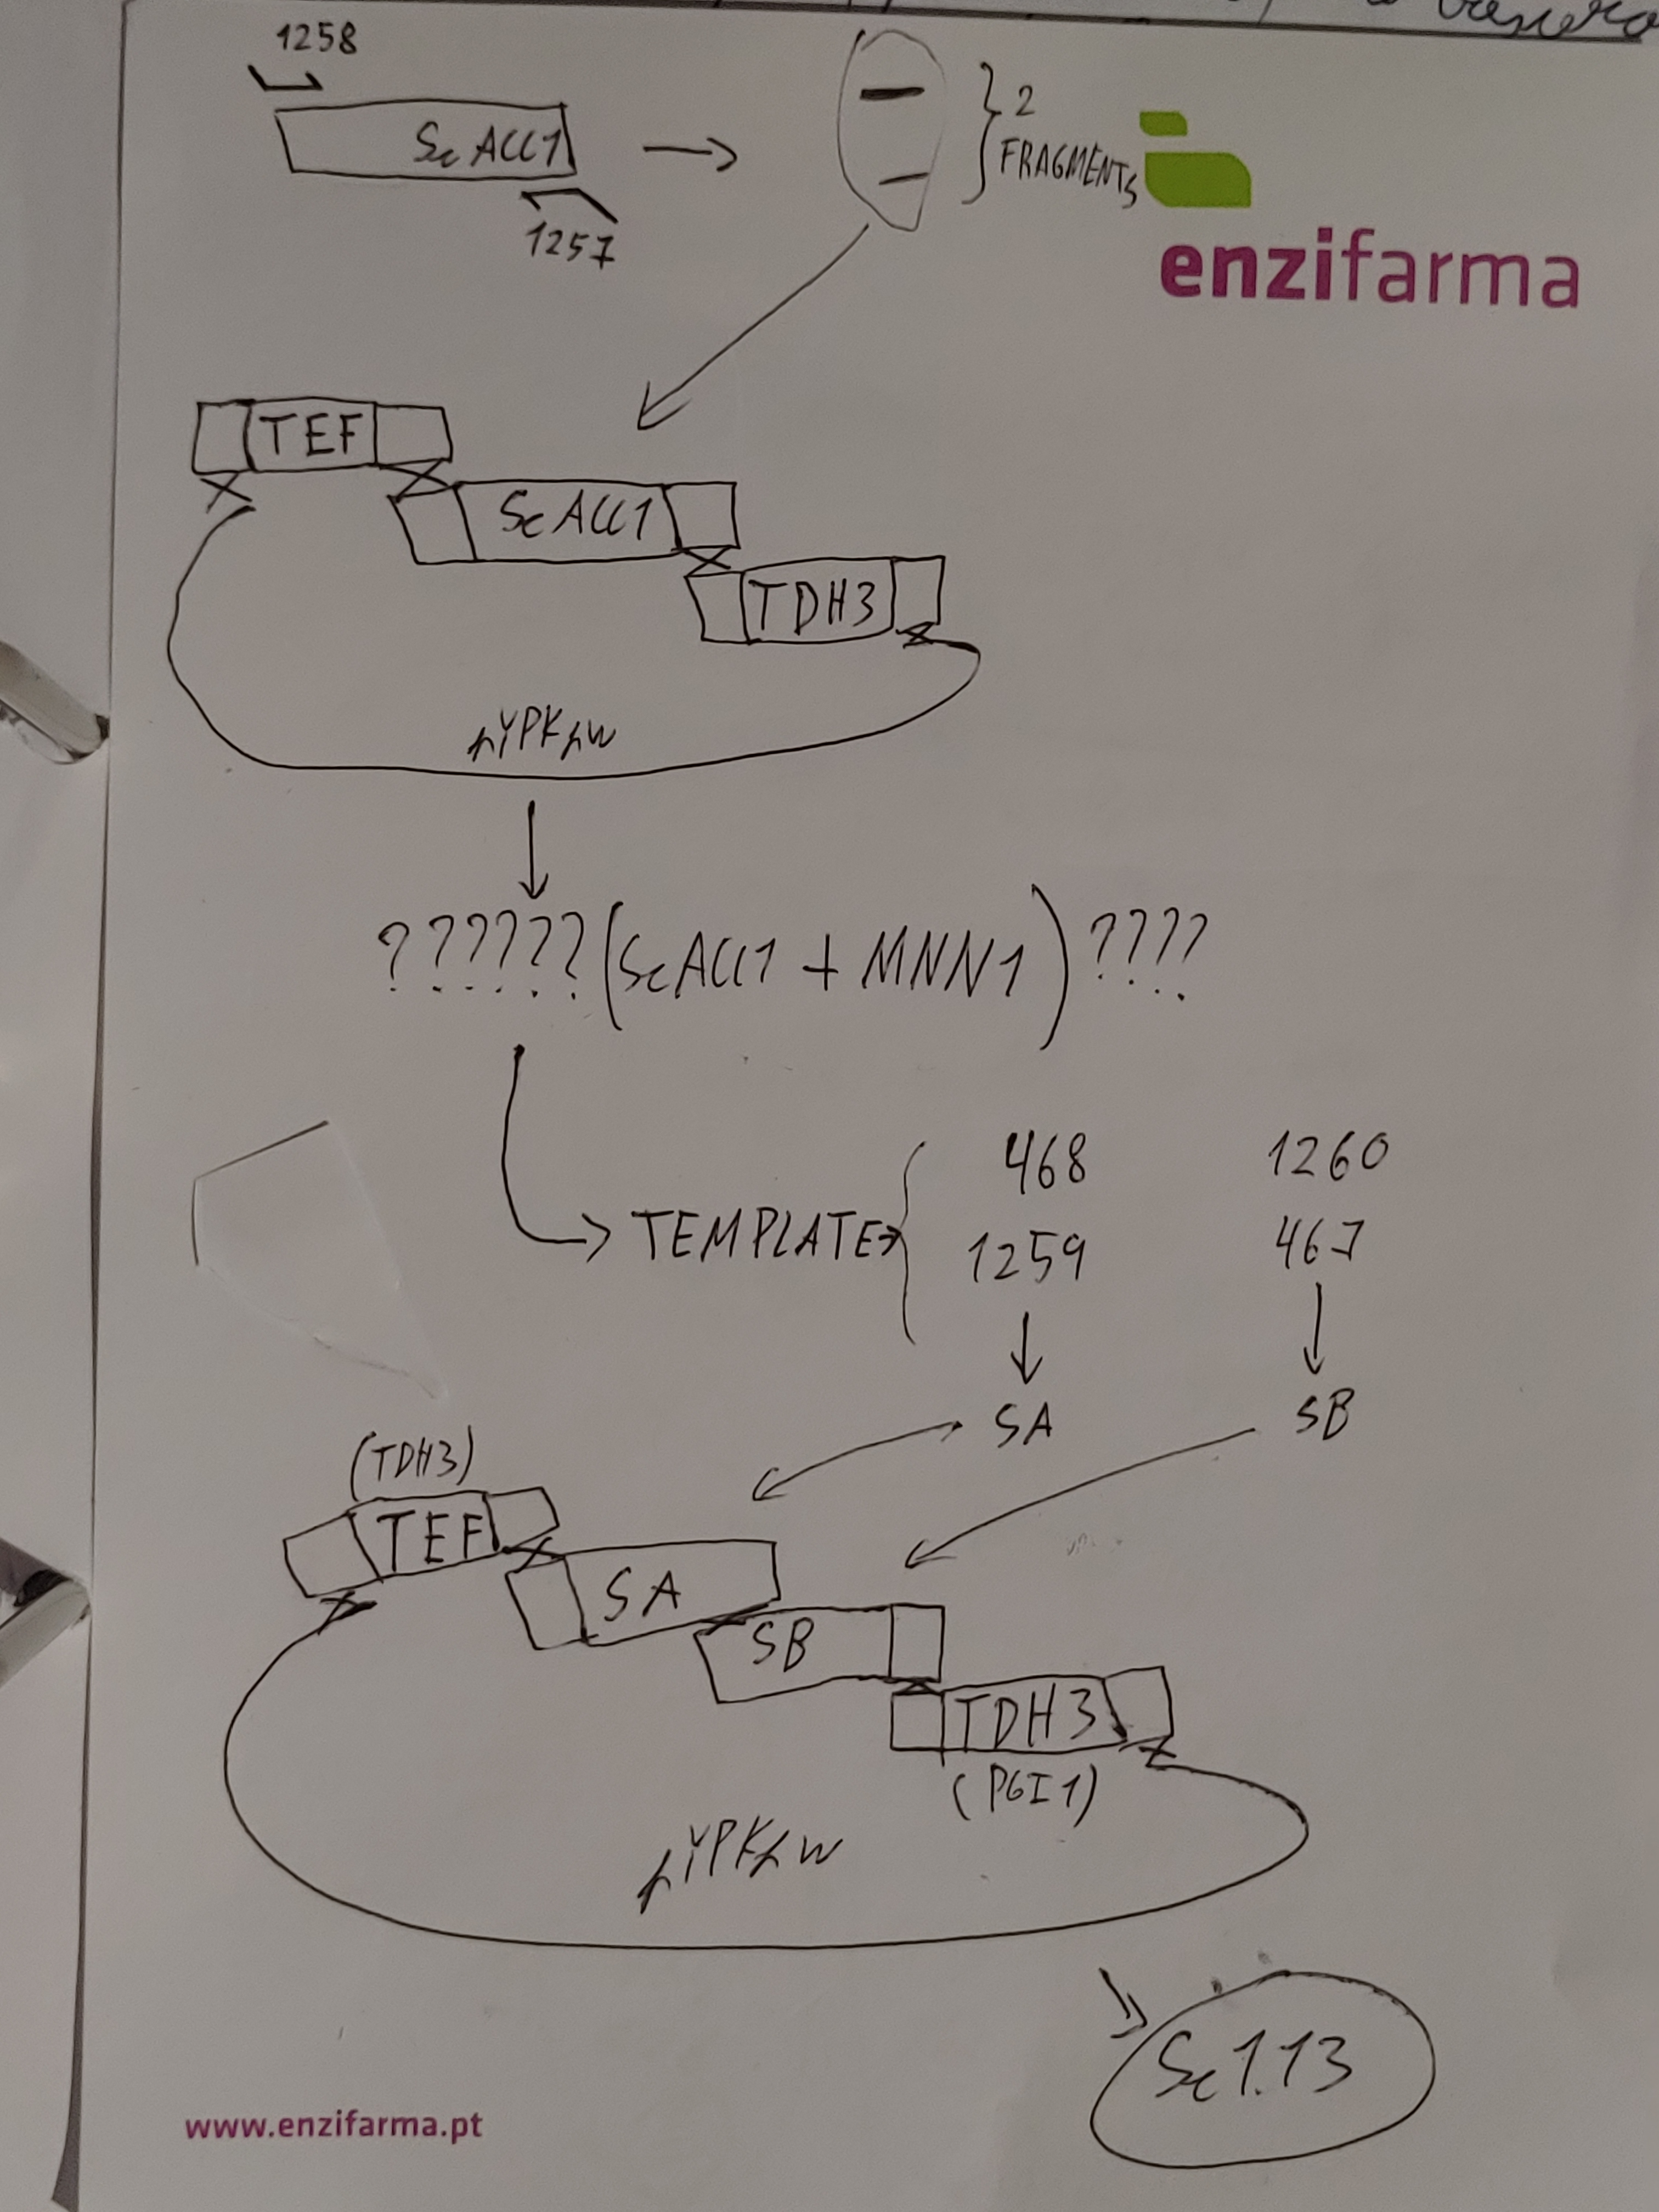 1258
ScACC1
1257
2
FRAGMENTS
enzifarma
TEF
ScACC1
TDH3
pYPKpw
??????(ScACC1 + MNN1)????
468 1260
TEMPLATE 1259 467
SA SB
(TDH3)
TEF
SA
SB
TDH3
(PGI1)
pYPKpw
Sc1.13
www.enzifarma.pt